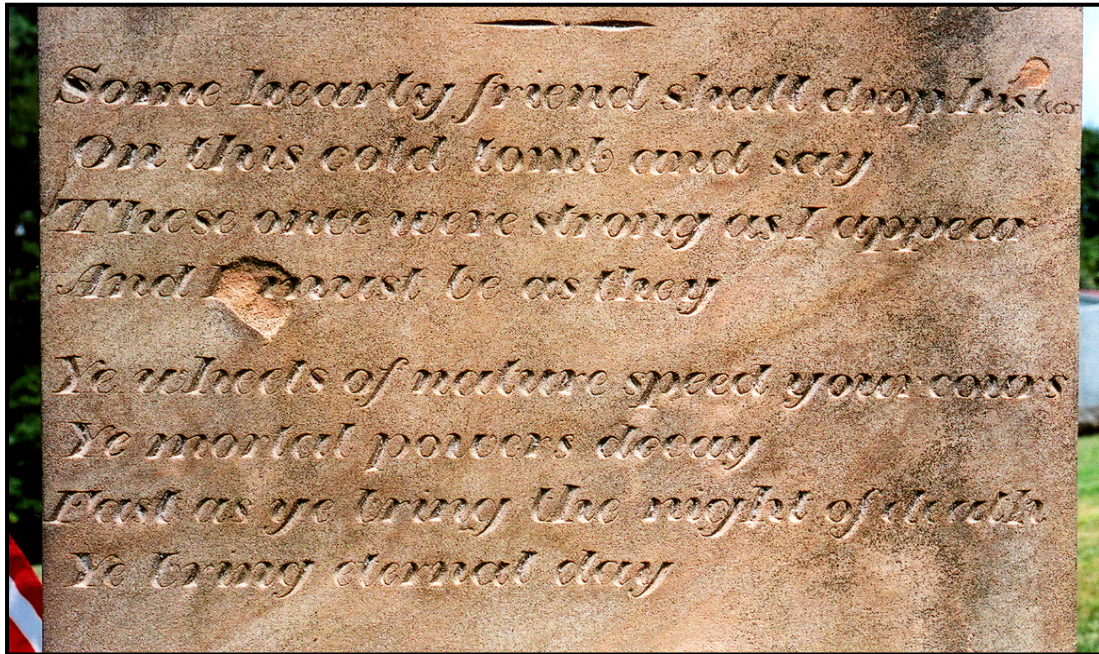 Some hearty friend shall drop his tear
On this cold tomb and say
These once were strong as I appear
And I must be as they
Ye wheels of nature speed your cours
Ye mortal powers decay
Fast as ye bring the night of death
Ye bring eternal day